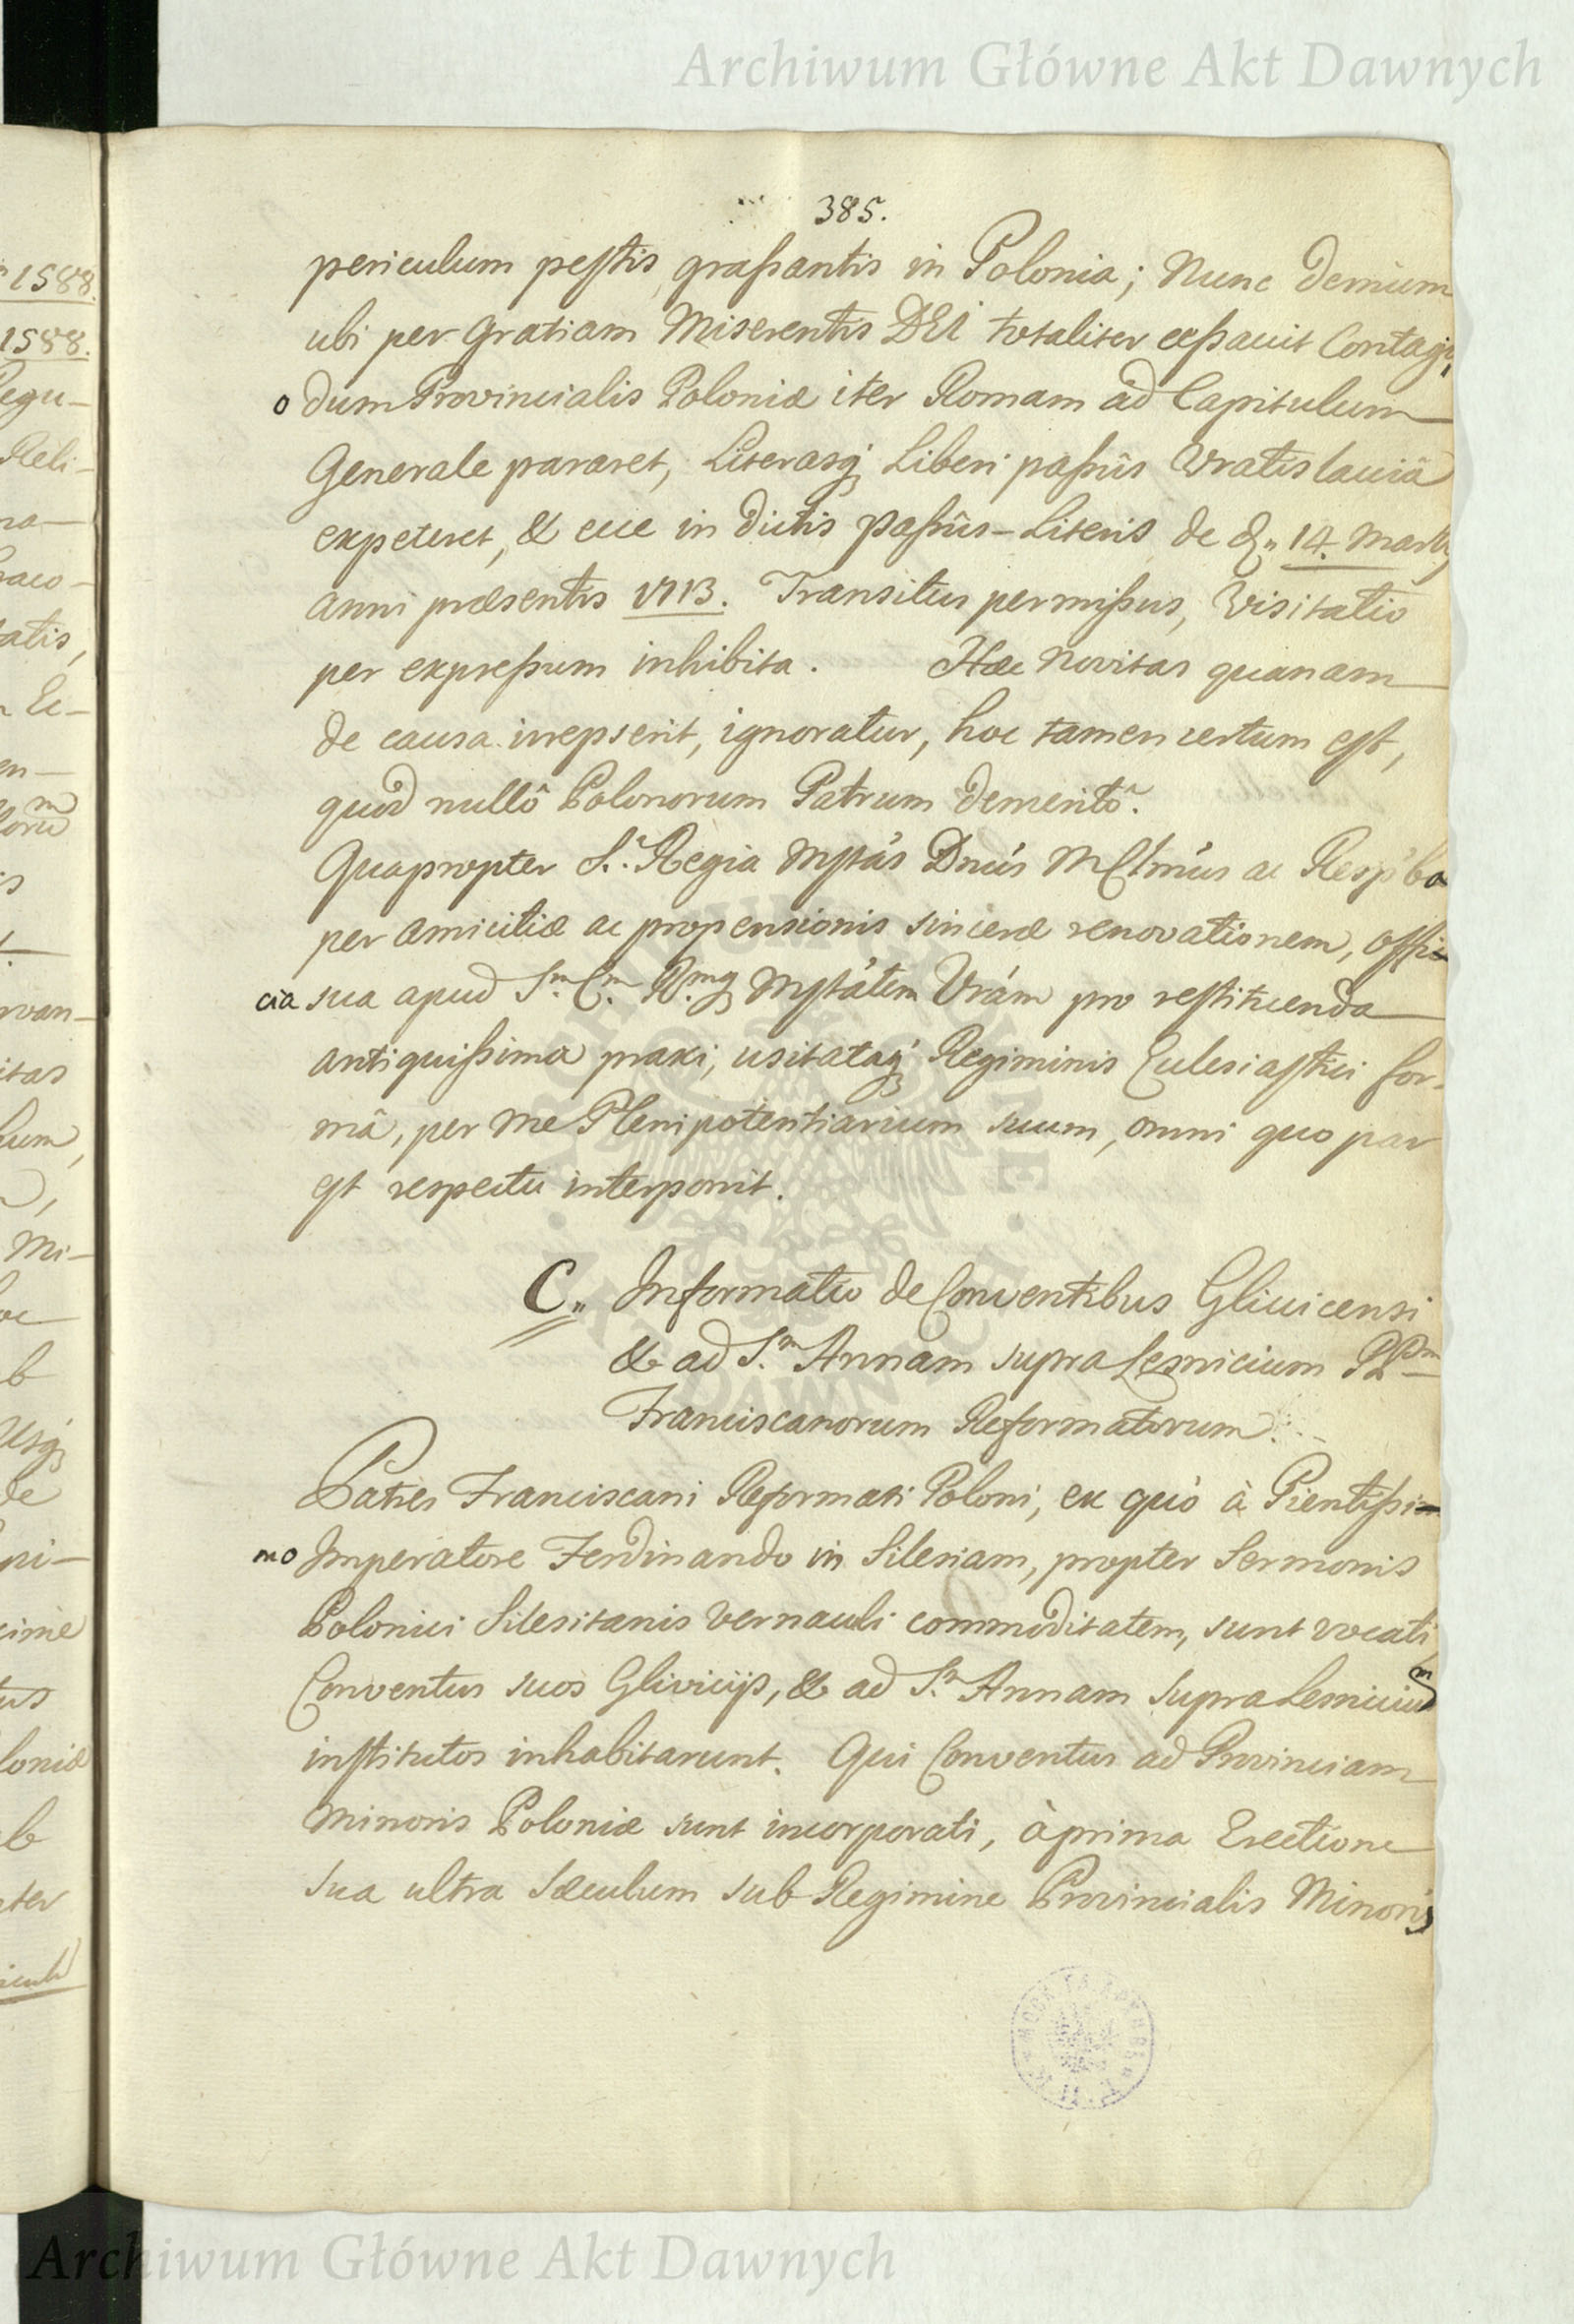 Archiwum Główne Akt Dawnych
385.
periculum pestis grassantis in Polonia; Nunc demum
ubi per gratiam Miserentis DEI totaliter cessavit Contagi„
o dum Provincialis Poloniæ iter Romam ad Capitulum
Generale pararet, Literasq; Liberi passûs Wratislaviâ
expeteret, & ecce in dictis Passûs-Literis de d„ 14. Martij
anni præsentis 1713. Transitus permissus, Visitatio
per expressum inhibita. Hæc Novitas quanam
de causa irrepserit, ignoratur, hoc tamen certum est,
quod nullô Polonorum Patrum demeritô.
Quapropter S. Regia Mȳtas Dnus M Clmus ac Respba
per amicitiæ ac propensionis sinceræ renovationem, offi
cia sua apud S.m C.m R.mq; Mytátem Vrám pro restituenda
antiquissima praxi, usitataq; Regiminis Ecclesiastici for-
mâ, per me Plenipotentiarium suum, omni quo par
est respectu interponit.
C„ Informatio de Conventibus Glivicensi
& ad S.m Annam supra Lesnicium PP.
Franciscanorum Reformatorum.
Patres Franciscani Reformati Poloni, ex quò à Pientissi-
mo Imperatore Ferdinando in Silesiam, propter Sermonis
Polonici Silesitanis vernaculi commoditatem, sunt vocati
Conventus suos Glivicijs, & ad S.m Annam supra Lesniciu͞m
institutos inhabitarunt. Qui Conventus ad Provinciam
Minoris Poloniæ sunt incorporati, à prima Erectione
sua ultra Sæculum sub Regimine Provincialis Minoris
1588.
1588.
egu-
Reli-
atis,
van-
itas
Mi-
Usq;
de
pi-
cime
tus
loniæ
Archiwum Główne Akt Dawnych